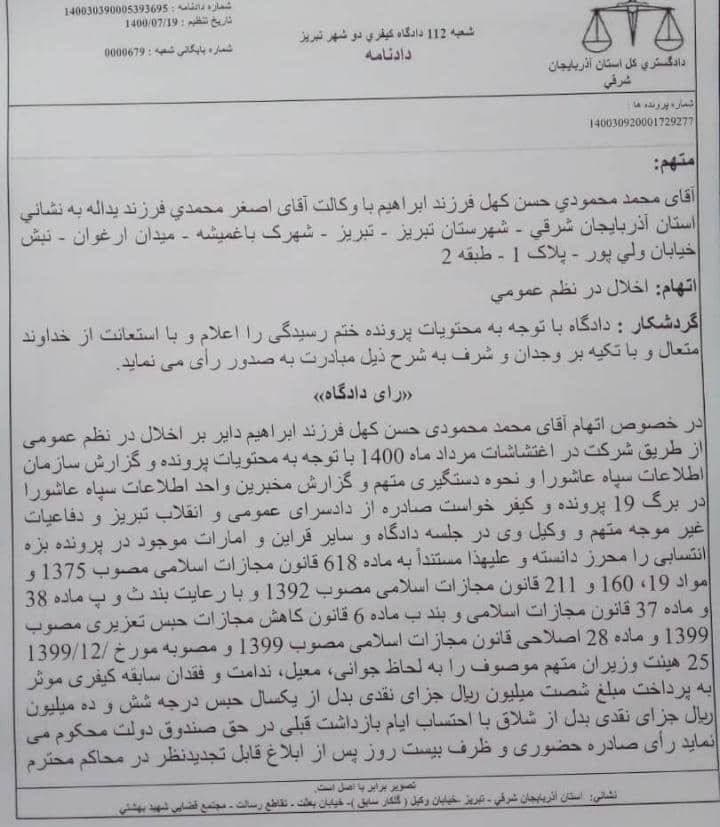 شماره دادنامه : 140030390005393695
تاریخ تنظیم : 1400/07/19
شماره بایگانی شعبه : 0000679
شعبه 112 دادگاه کیفري دو شهر تبریز
دادنامه
دادگستري کل استان آذربایجان
شرقي
شماره پرونده ها :
140030920001729277
متهم:
آقای محمد محمودي حسن کهل فرزند ابراهیم با وکالت آقای اصغر محمدي فرزند یداله به نشاني
استان آذربایجان شرقي - شهرستان تبریز - تبریز - شهرک باغمیشه - میدان ارغوان - نبش
خیابان ولي پور - پلاک 1 - طبقه 2
اتهام: اخلال در نظم عمومي
گردشکار : دادگاه با توجه به محتویات پرونده ختم رسیدگی را اعلام و با استعانت از خداوند
متعال و با تکیه بر وجدان و شرف به شرح ذیل مبادرت به صدور رأی می نماید.
«رای دادگاه»
در خصوص اتهام آقای محمد محمودی حسن کهل فرزند ابراهیم دایر بر اخلال در نظم عمومی
از طریق شرکت در اغتشاشات مرداد ماه 1400 با توجه به محتویات پرونده و گزارش سازمان
اطلاعات سپاه عاشورا و نحوه دستگیری متهم و گزارش مخبرین واحد اطلاعات سپاه عاشورا
در برگ 19 پرونده و کیفر خواست صادره از دادسرای عمومی و انقلاب تبریز و دفاعیات
غیر موجه متهم و وکیل وی در جلسه دادگاه و سایر قراین و امارات موجود در پرونده بزه
انتسابی را محرز دانسته و علیهذا مستنداً به ماده 618 قانون مجازات اسلامی مصوب 1375 و
مواد 19، 160 و 211 قانون مجازات اسلامی مصوب 1392 و با رعایت بند ث و پ ماده 38
و ماده 37 قانون مجازات اسلامی و بند ب ماده 6 قانون کاهش مجازات حبس تعزیری مصوب
1399 و ماده 28 اصلاحی قانون مجازات اسلامی مصوب 1399 و مصوبه مورخ 1399/12/
25 هیئت وزیران متهم موصوف را به لحاظ جوانی، معیل، ندامت و فقدان سابقه کیفری موثر
به پرداخت مبلغ شصت میلیون ریال جزای نقدی بدل از یکسال حبس درجه شش و ده میلیون
ریال جزای نقدی بدل از شلاق با احتساب ایام بازداشت قبلی در حق صندوق دولت محکوم می
نماید رأی صادره حضوری و ظرف بیست روز پس از ابلاغ قابل تجدیدنظر در محاکم محترم
تصویر برابر با اصل است.
نشاني: استان آذربایجان شرقي - تبریز -خیابان وکیل ( گلکار سابق )- خیابان بعثت - تقاطع رسالت - مجتمع قضایي شهید بهشتي